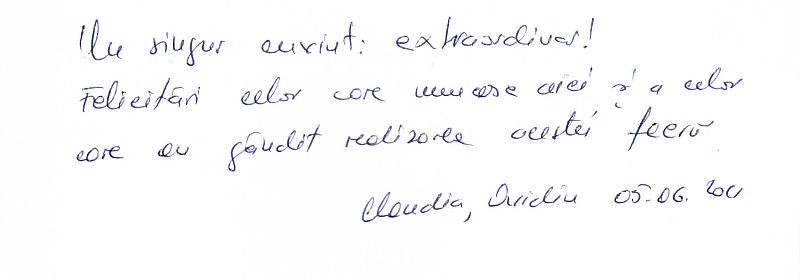 Un singur cuvint: extraordinar!
Felicitări celor care muncesc aici și a celor
care au gândit realizarea acestei feerii
Claudia, Ovidiu 05.06.2011